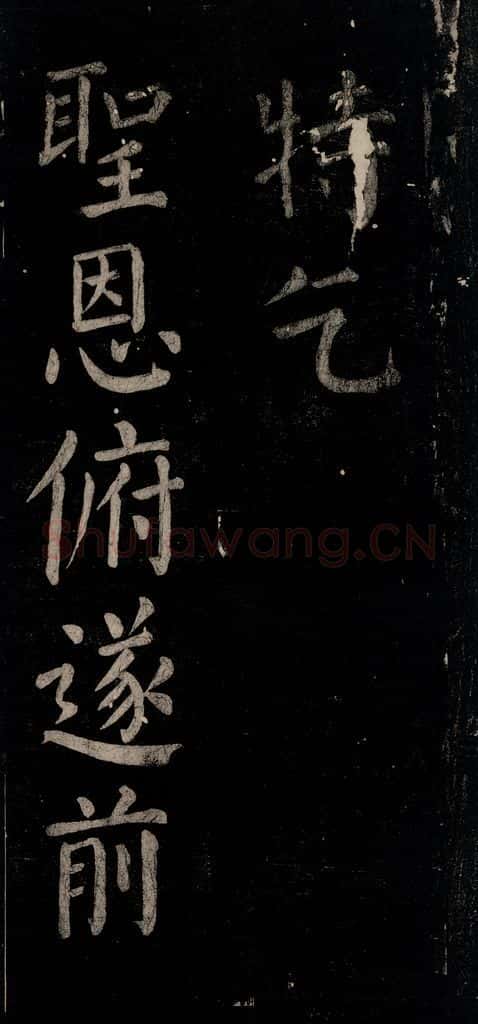 特乞
聖恩俯遂前
Shufawang.CN